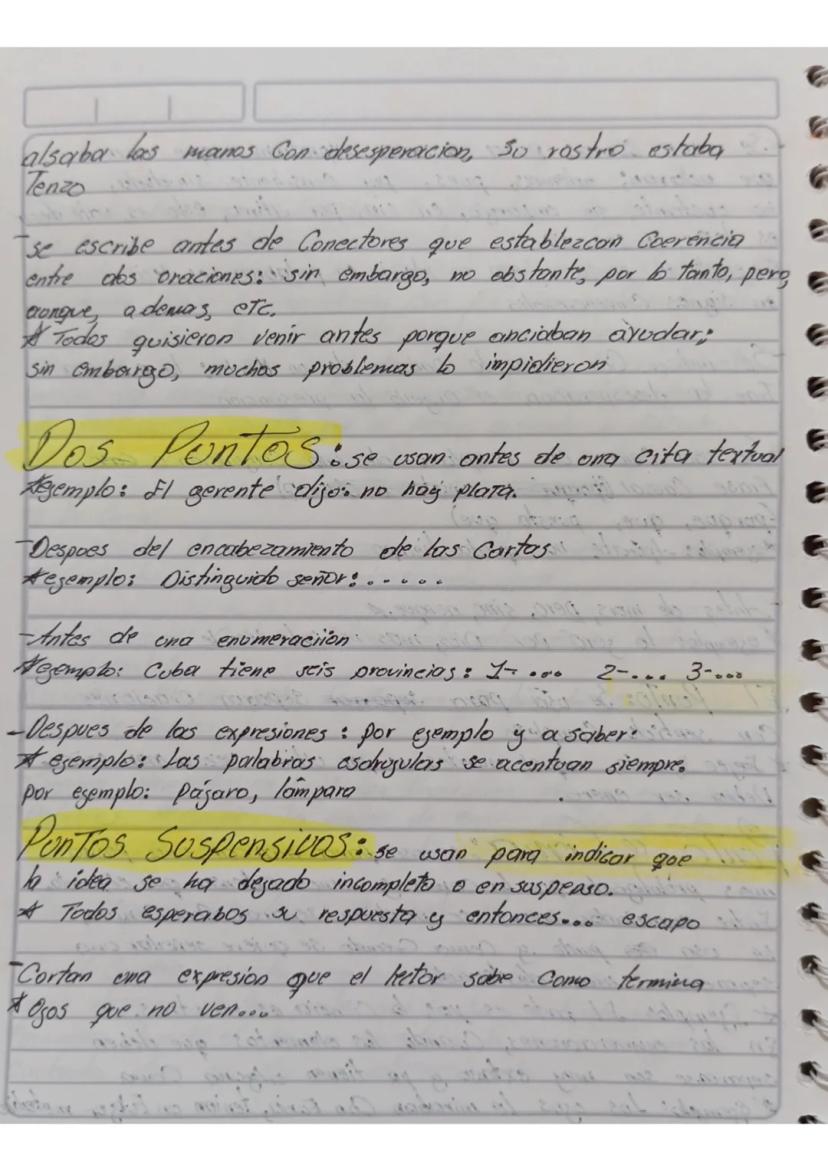 alsaba las manos Con desesperacion, su rostro estaba
Tenzo
-se escribe antes de Conectores que establezcan Coerencia
entre dos oraciones: sin embargo, no obstante, por lo tanto, pero,
aunque, ademas, etc.
* Todos quisieron venir antes porque anciaban ayudar;
sin embargo, muchos problemas lo impidieron
Dos Puntos: se usan antes de una cita textual
*egemplo: El gerente dijo: no hay plata.
-Despues del encabezamiento de las Cartas
*egemplo: Distinguido señor: .....
-Antes de una enumeraciion
*egemplo: Cuba tiene seis provincias: 1-... 2-... 3-...
-Despues de las expresiones: por egemplo y a saber:
* egemplo: Las palabras esdrugulas se acentuan siempre.
por egemplo: Págaro, lámpara
Puntos Suspensivos: se usan para indicar que
la idea se ha degado incompleta o en suspenso.
* Todos esperabos su respuesta y entonces... escapo
-Cortan una expresion que el lector sabe Como termina
* Ogos que no ven...